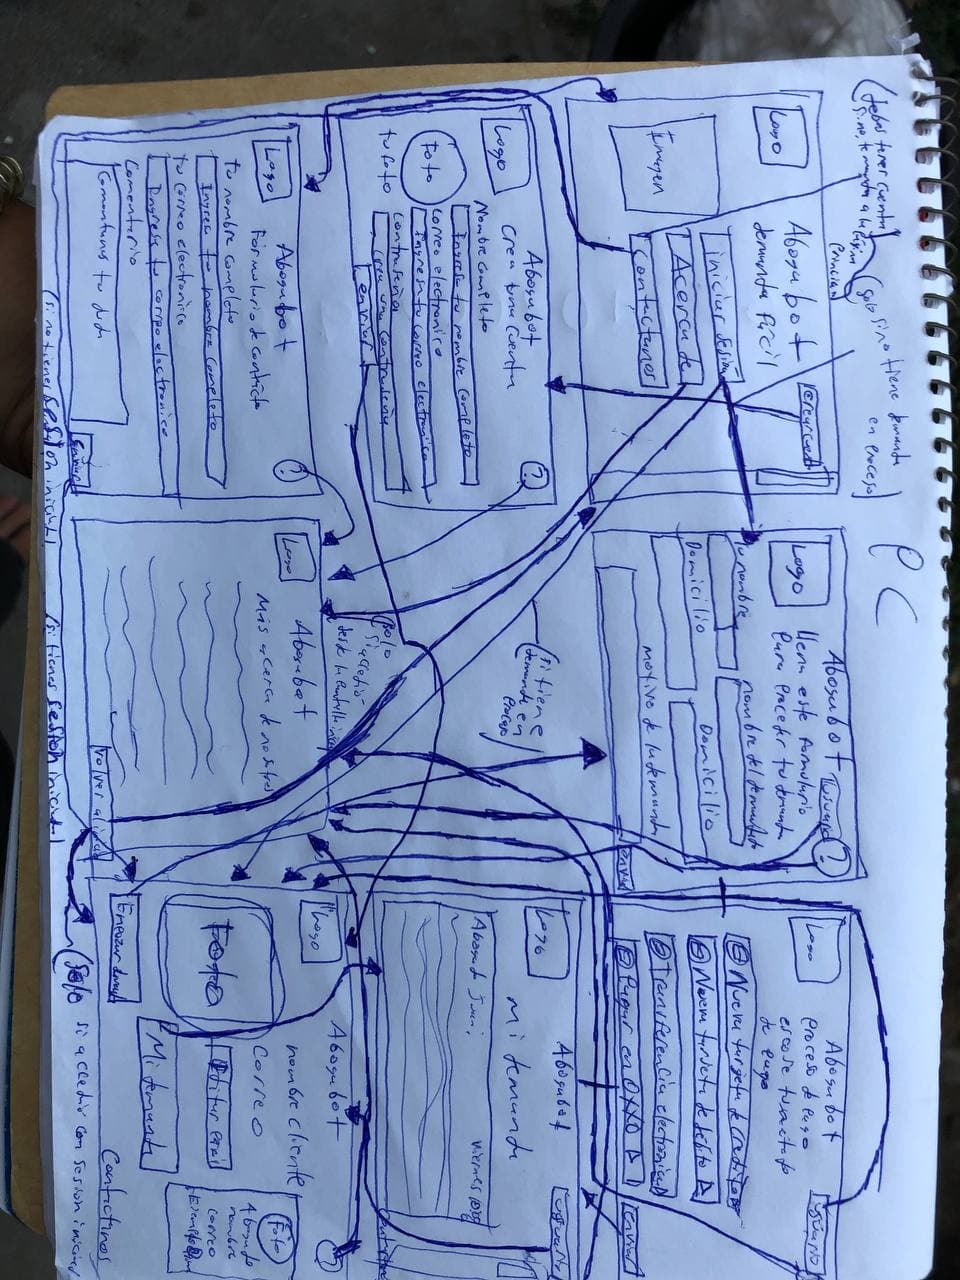 PC
(debes tener cuenta
si no, te manda a la página
principal
(solo si no tiene demanda
en proceso)
Logo
Abogabot
demanda fácil
crear cuenta
iniciar sesion
Acerca de
contactanos
Imagen
Logo
Abogabot
usuario
?
llena este formulario
para proceder tu demanda
tu nombre
nombre del demandado
Domicilio
Domicilio
motivo de la demanda
enviar
Logo
Abogabot
usuario
proceso de pago
escoge tu metodo
de pago
Nueva tarjeta de credito
Nueva tarjeta de débito
transferencia electronica
Pagar en OXXO
enviar
Logo
Abogabot
?
Crea una cuenta
Nombre completo
Ingresa tu nombre completo
Correo electronico
Ingresa tu correo electronico
contraseña
crea una contraseña
enviar
Foto
tu foto
(si tiene
demanda en
proceso)
Logo
Abogabot
usuario
Mi demanda
Abogado Juan,
viernes
(solo
si accedió
desde la pantalla inicio
Logo
Abogabot
?
Formulario de contacto
tu nombre completo
Ingresa tu nombre completo
tu correo electronico
Ingresa tu correo electronico
Comentario
Comentanos tu duda
enviar
(si no tienes sesion iniciada)
Logo
Abogabot
Más acerca de nosotros
volver al inicio
(si tienes sesion iniciada)
Logo
Abogabot
?
nombre cliente
Correo
Editar
Mi demanda
Foto
Empezar demanda
Foto
Abogado
nombre
correo
Contactanos
(solo si accedió con sesion iniciada